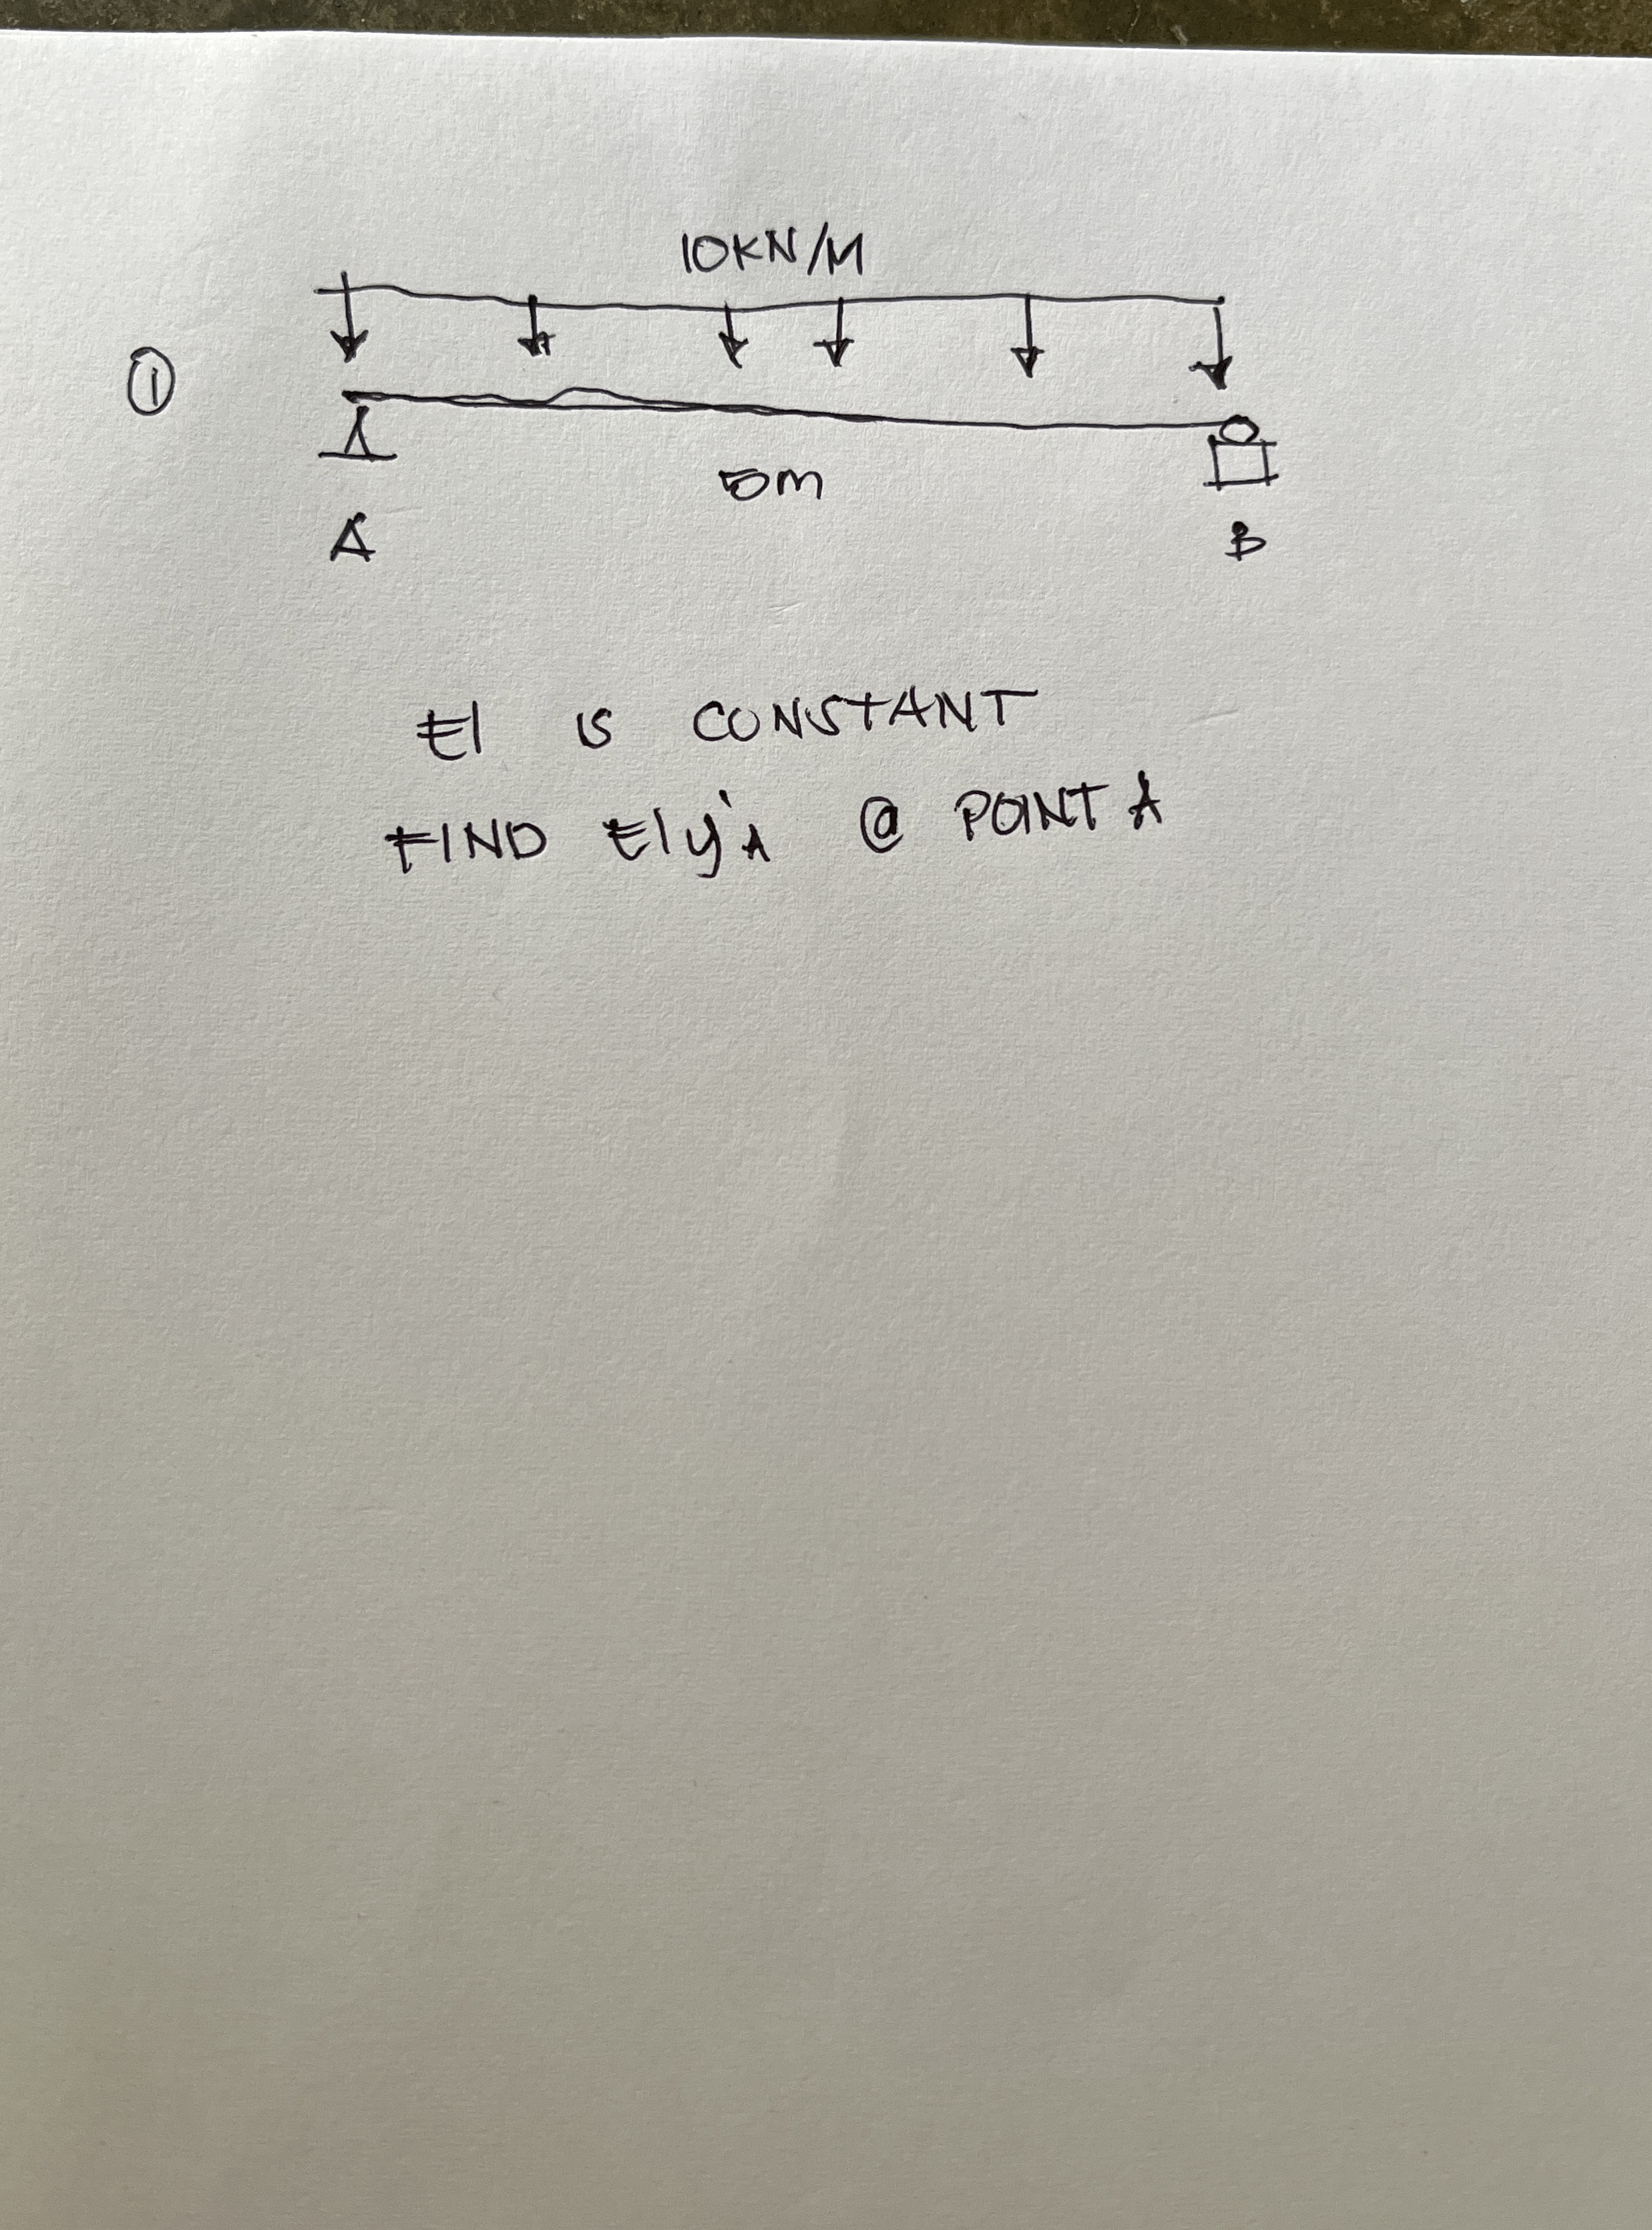 10KN/M
①
5m
A B
EI IS CONSTANT
FIND EIy'A @ POINT A